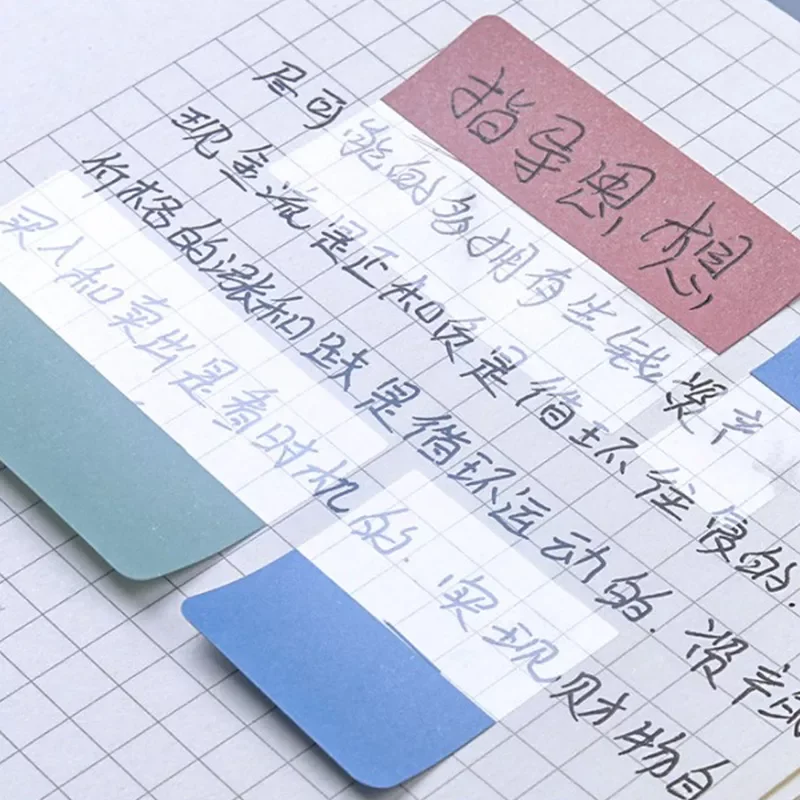 指导思想
尽可能的多拥有生钱资产
现金流是正和负是循环往复的.
价格的涨和跌是循环运动的. 资产
买入和卖出是看时机的. 实现财物自